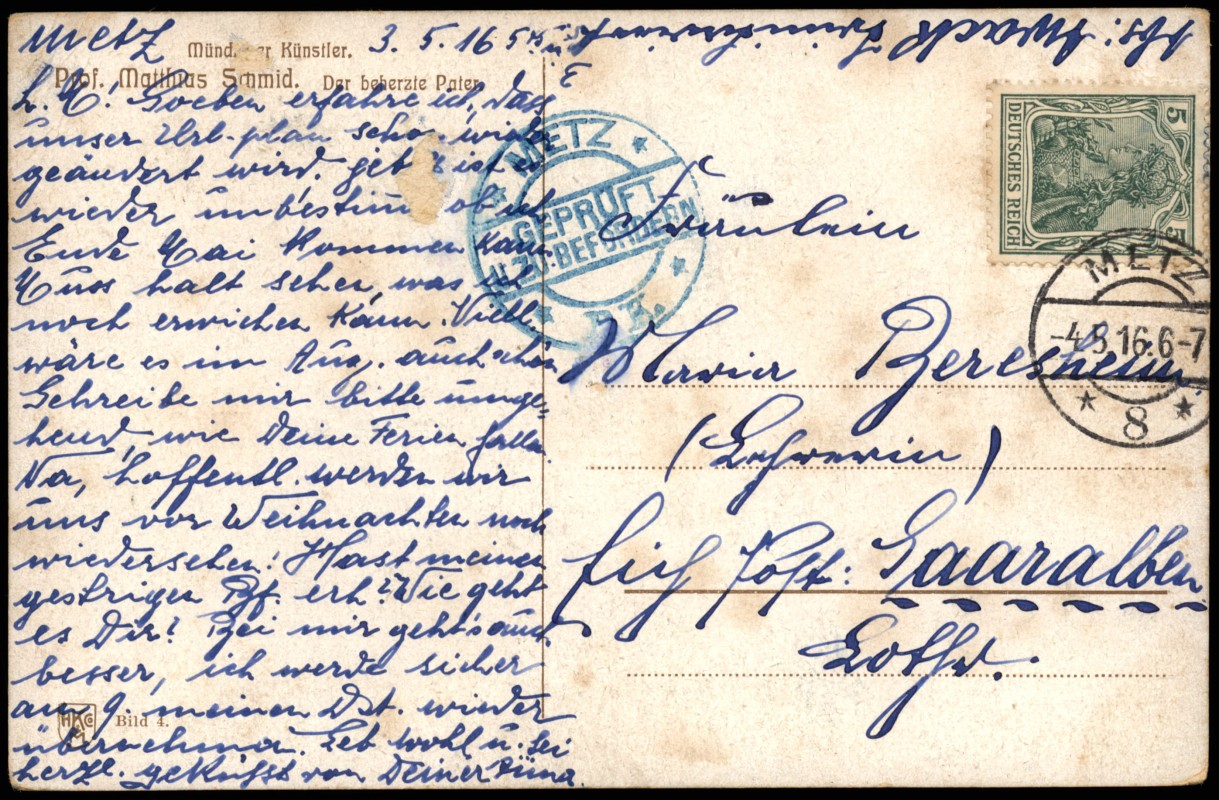 Metz 3. 5. 16
Münchner Künstler.
Prof. Matthias Schmid. Der beherzte Pater.
L. M. Soeben erfahre ich, dass
unser Url-plan scho wieder
geändert wird. Jetzt ist es
wieder unbestimmt ob ich
Ende Mai kommen kann
Muss halt sehen, was ich
noch erwichen kann. Viell.
wäre es im Aug. auch schön
Schreibe mir bitte umge-
hend, wie Deine Ferien fallen.
Na, hoffentl. werden wir
uns vor Weihnachten noch
wiedersehen! Hast meinen
gestrigen Bf. erh? Wie geht
es Dir? Bei mir geht's auch
besser, ich werde sicher
am 9. meinen Dst. wieder
übernehmen. Leb wohl u. sei
herzl. geküsst von Deiner
HKCo
M
Bild 4.
Abs:
METZ
GEPRÜFT
U. ZU BEFÖRDERN
P.K.
DEUTSCHES REICH
5 5
METZ
-4.5.16.6-7
8
Fräulein
Maria Beresheim
(Lehrerin)
Eich Post: Saaralben
Lothr.